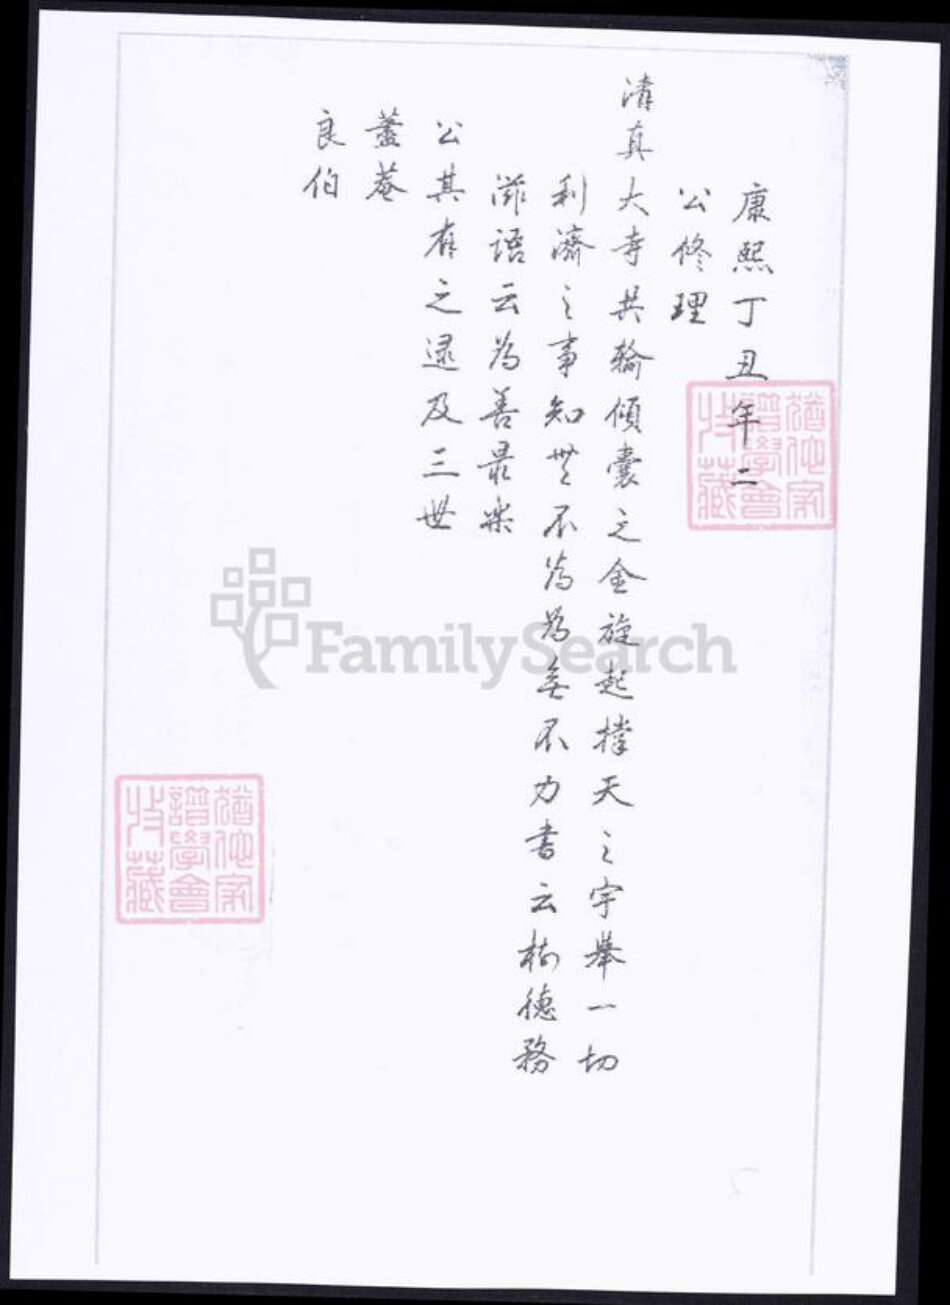 康熙丁丑年二
公修理
清真大寺共輸傾囊之金旋起撑天之宇舉一切
利濟之事知世不為為無不力書云樹德務
滋語云為善最樂
公其有之逮及三世
蓋菴
良伯
譜學會
收藏
FamilySearch
譜學會
收藏